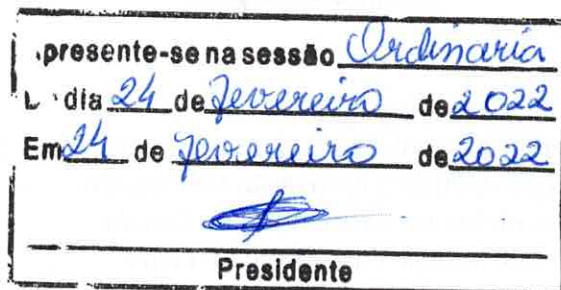 .presente-se na sessão Ordinaria
L dia 24 de Fevereiro de 2022
Em 24 de Fevereiro de 2022
Presidente